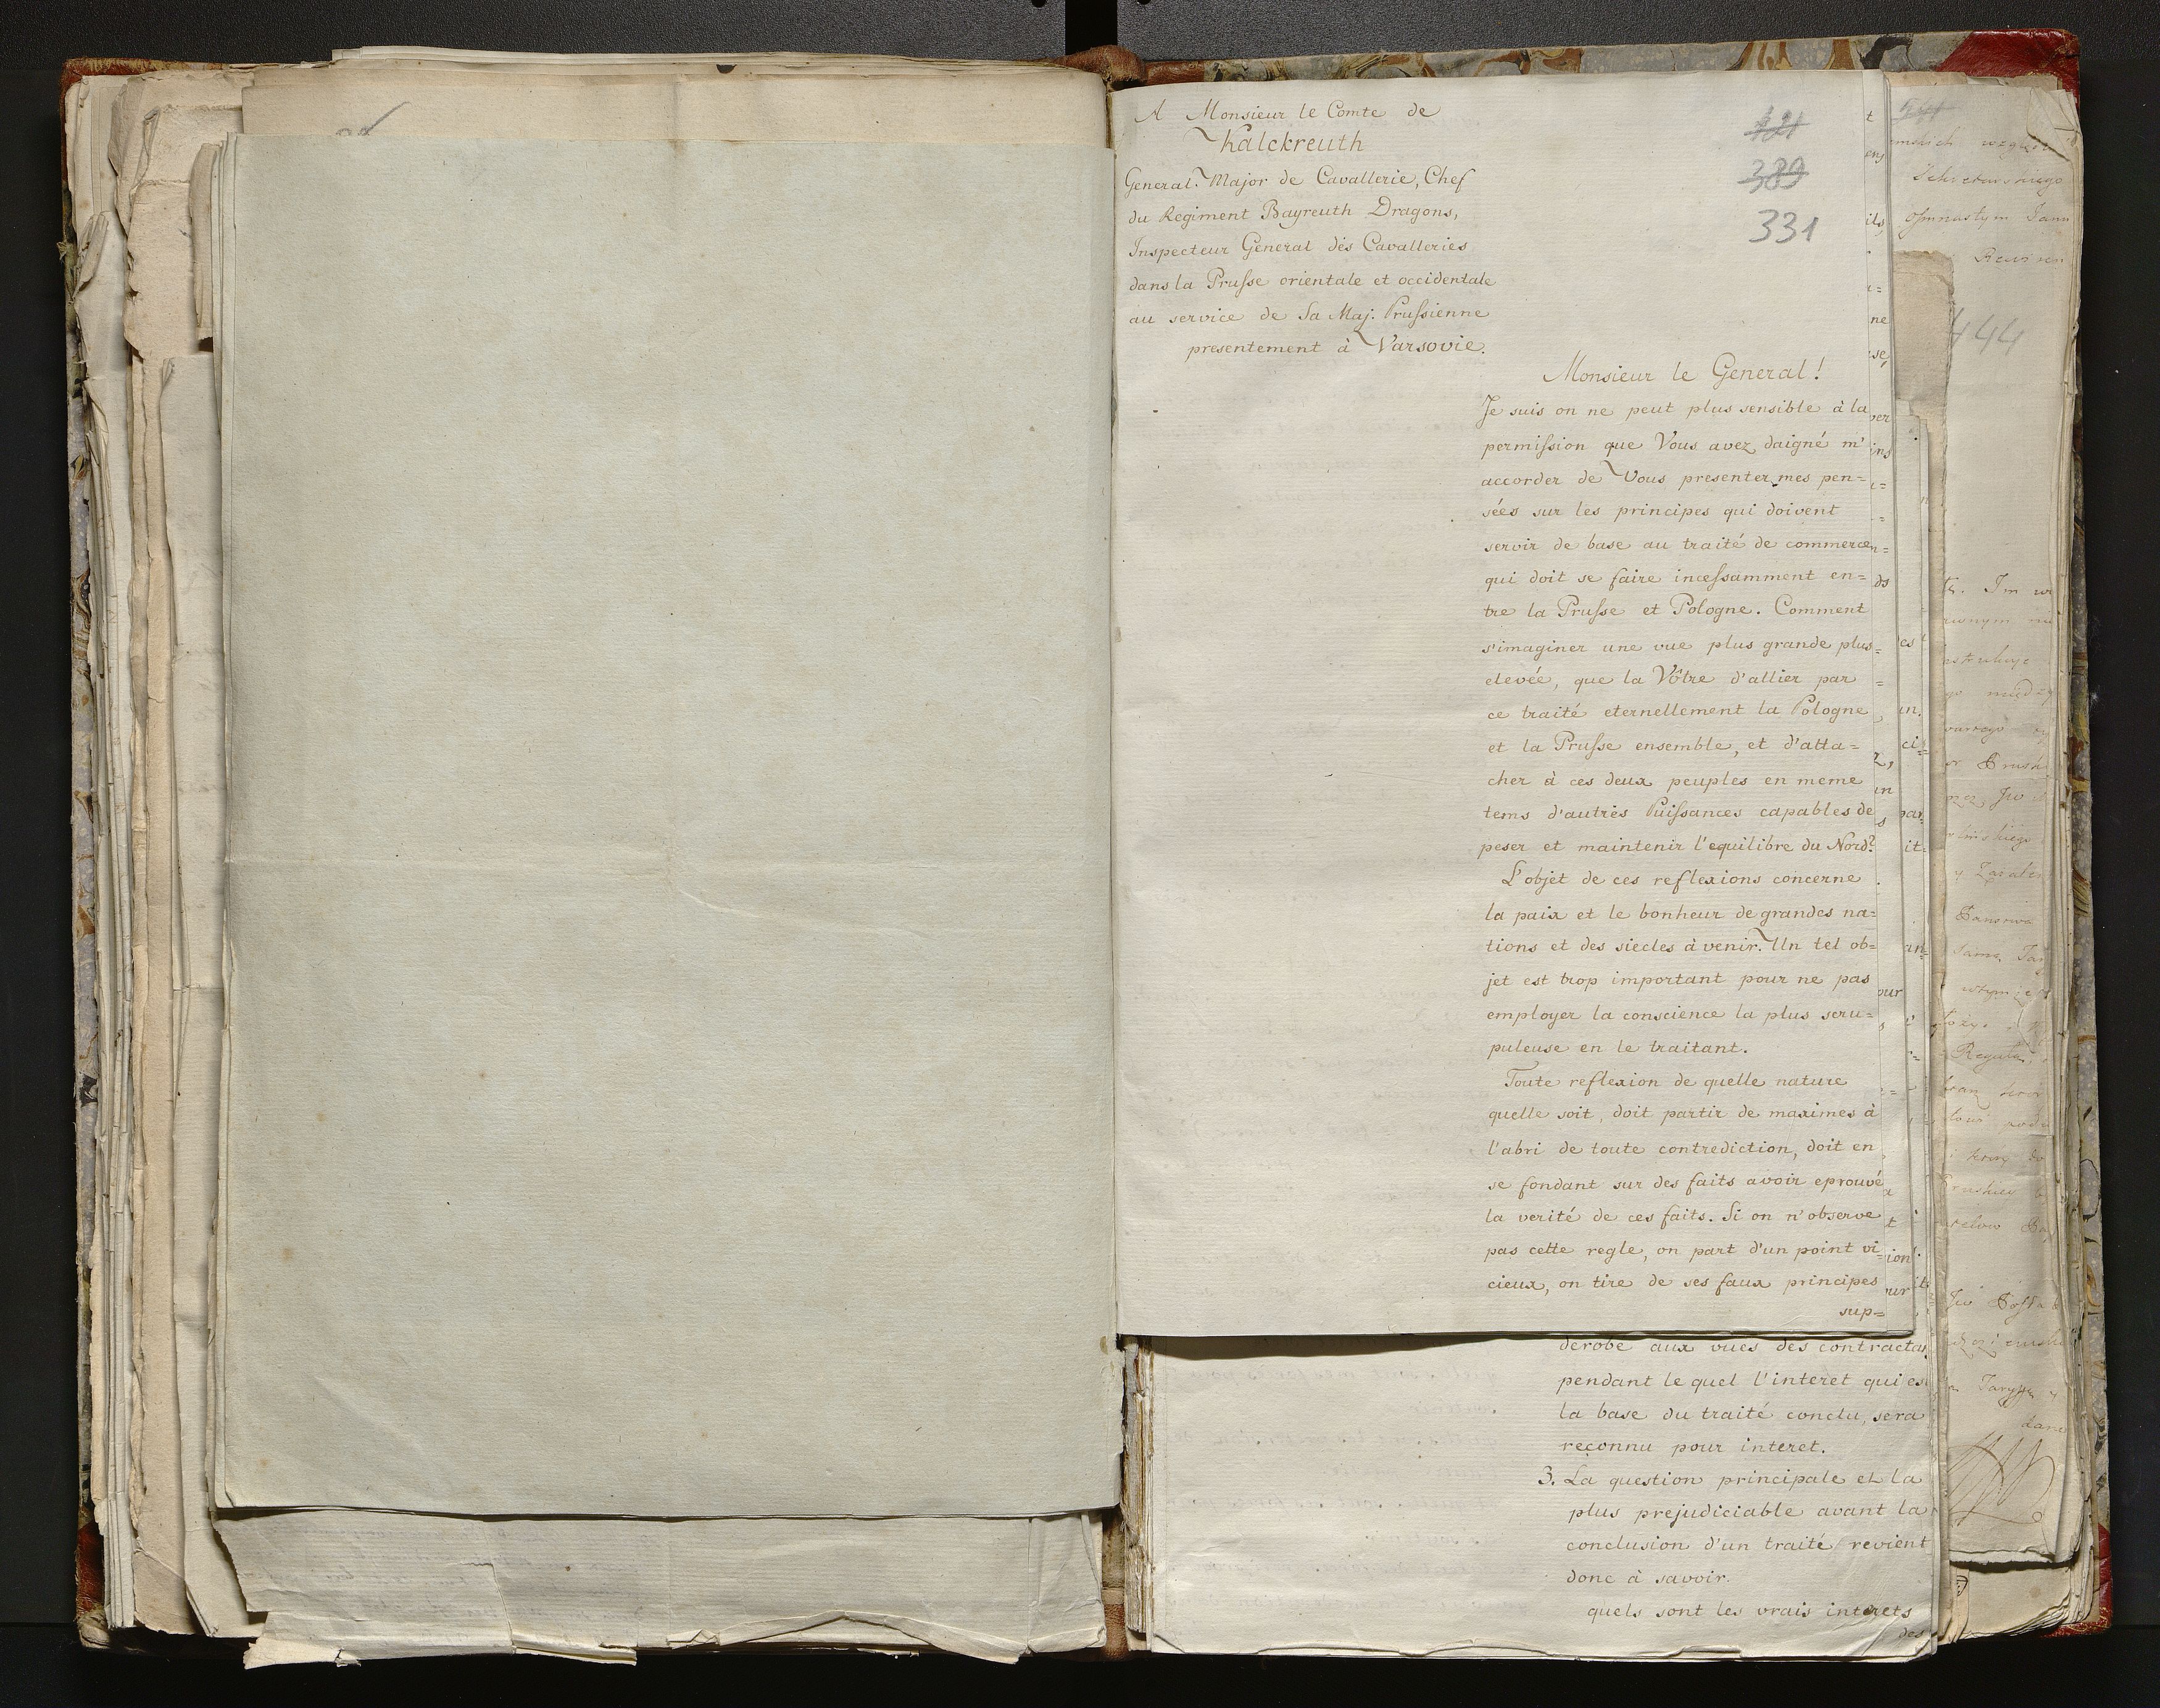 A Monsieur le Comte de
Kalckreuth
General-Major de Cavallerie, Chef
du Regiment Bayreuth Dragons,
Inspecteur General des Cavalleries
dans la Prusse orientale et occidentale
au service de Sa Maj. Prussienne
presentement à Varsovie.
421
389
331
Monsieur le General!
Je suis on ne peut plus sensible à la
permission que Vous avez daigné m'
accorder de Vous presenter mes pen=
sées sur les principes qui doivent
servir de base au traité de commerce
qui doit se faire incessamment en=
tre la Prusse et Pologne. Comment
s'imaginer une vue plus grande plus
elevée, que la Vôtre d'allier par
ce traité eternellement la Pologne
et la Prusse ensemble, et d'atta=
cher à ces deux peuples en meme
tems d'autres Puissances capables de
peser et maintenir l'equilibre du Nord?
L'objet de ces reflexions concerne
la paix et le bonheur de grandes na=
tions et des siecles à venir. Un tel ob=
jet est trop important pour ne pas
employer la conscience la plus scru=
puleuse en le traitant.
Toute reflexion de quelle nature
quelle soit, doit partir de maximes à
l'abri de toute contrediction, doit en
se fondant sur des faits avoir eprouvé
la verité de ces faits. Si on n'observe
pas cette regle, on part d'un point vi=
cieux, on tire de ses faux principes
sup=
derobe aux vues des contracta
pendant le quel l'interet qui es
la base du traité conclu, sera
reconnu pour interet.
3. La question principale et la
plus prejudiciable avant la
conclusion d'un traité revient
donc à savoir.
quels sont les vrais interets
des
444